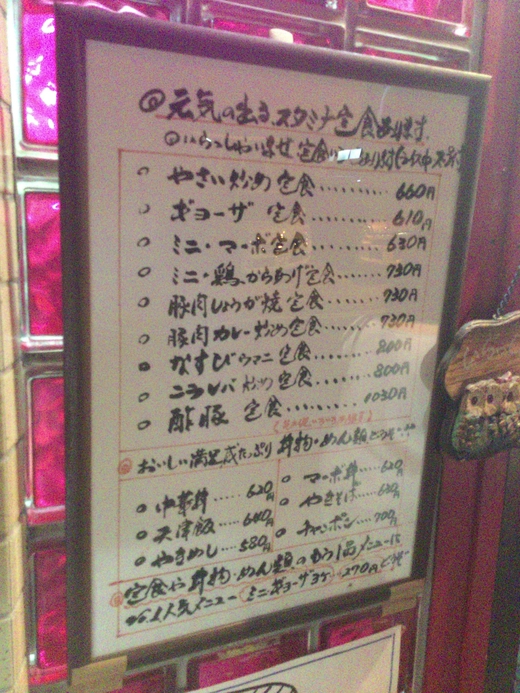 ◎元気の出るスタミナ定食あります。
◎いらっしゃいませ 定食
○ やさい炒め定食………660円
○ ギョーザ 定食………610円
○ ミニ・マーボ定食………630円
○ ミニ・鶏からあげ定食……730円
○ 豚肉しょうが焼 定食……730円
○ 豚肉カレー炒め定食……730円
○ なすびウマニ 定食……800円
○ ニラレバ炒め 定食……800円
○ 酢豚 定食………1030円
◎おいしい満足感たっぷり 丼物・めん類どうぞ!!
○ 中華丼……620円
○ 天津飯……640円
○ やきめし…580円
○ マーボ丼…620円
○ やきそば…620円
○ チャンポン…700円
◎定食や丼物・めん類のもう1品メニューに
人気メニュー ミニギョーザ3ケ 270円 どうぞ